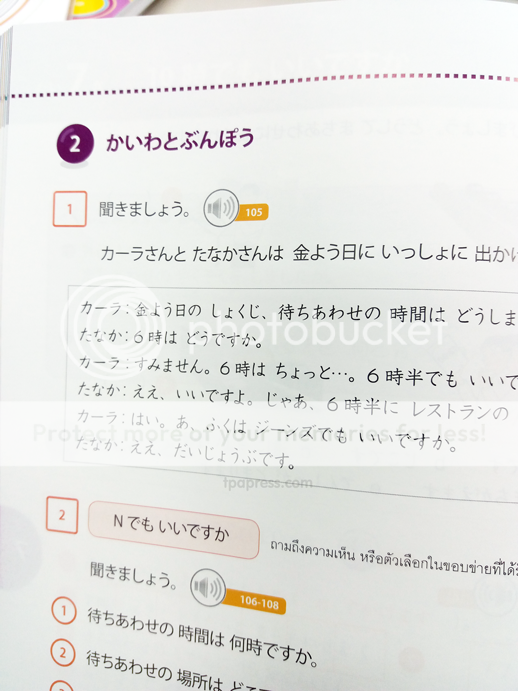 2 かいわとぶんぽう
1 聞きましょう。 105
カーラさんと たなかさんは 金よう日に いっしょに 出か
カーラ：金よう日の しょくじ、待ちあわせの 時間は どうしま
たなか：6時は どうですか。
カーラ：すみません。6時は ちょっと…。6時半でも いいで
たなか：ええ、いいですよ。じゃあ、6時半に レストランの
カーラ：はい。あ、ふくは ジーンズでも いいですか。
たなか：ええ、だいじょうぶです。
photobucket
Protect more of your memories for less!
tpapress.com
2 Nでも いいですか
ถามถึงความเห็น หรือตัวเลือกในขอบข่ายที่ได้
聞きましょう。 106-108
1 待ちあわせの 時間は 何時ですか。
2 待ちあわせの 場所は どこ
3